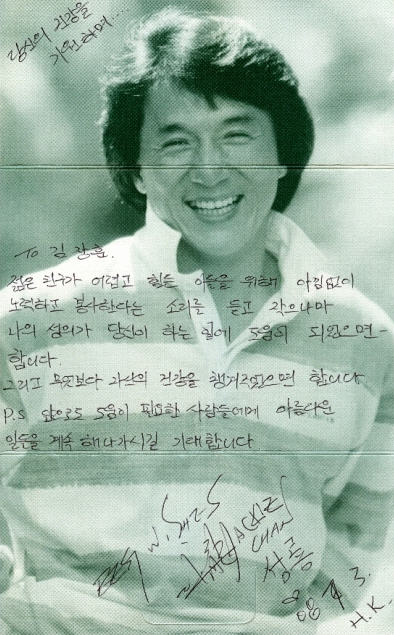 당신의 건강을
기원하며....
To 김 장훈.
젊은 친구가 어렵고 힘든 이들을 위해 아낌없이
노력하고 봉사한다는 소리를 듣고 작으나마
나의 성의가 당신이 하는 일에 도움이 되었으면
합니다.
그리고 무엇보다 자신의 건강을 챙겨주었으면 합니다
P.S 앞으로도 도움이 필요한 사람들에게 아름다운
일들을 계속 해나가시길 기대합니다
JACKIE
CHAN
성룡
08 3.
H.K.